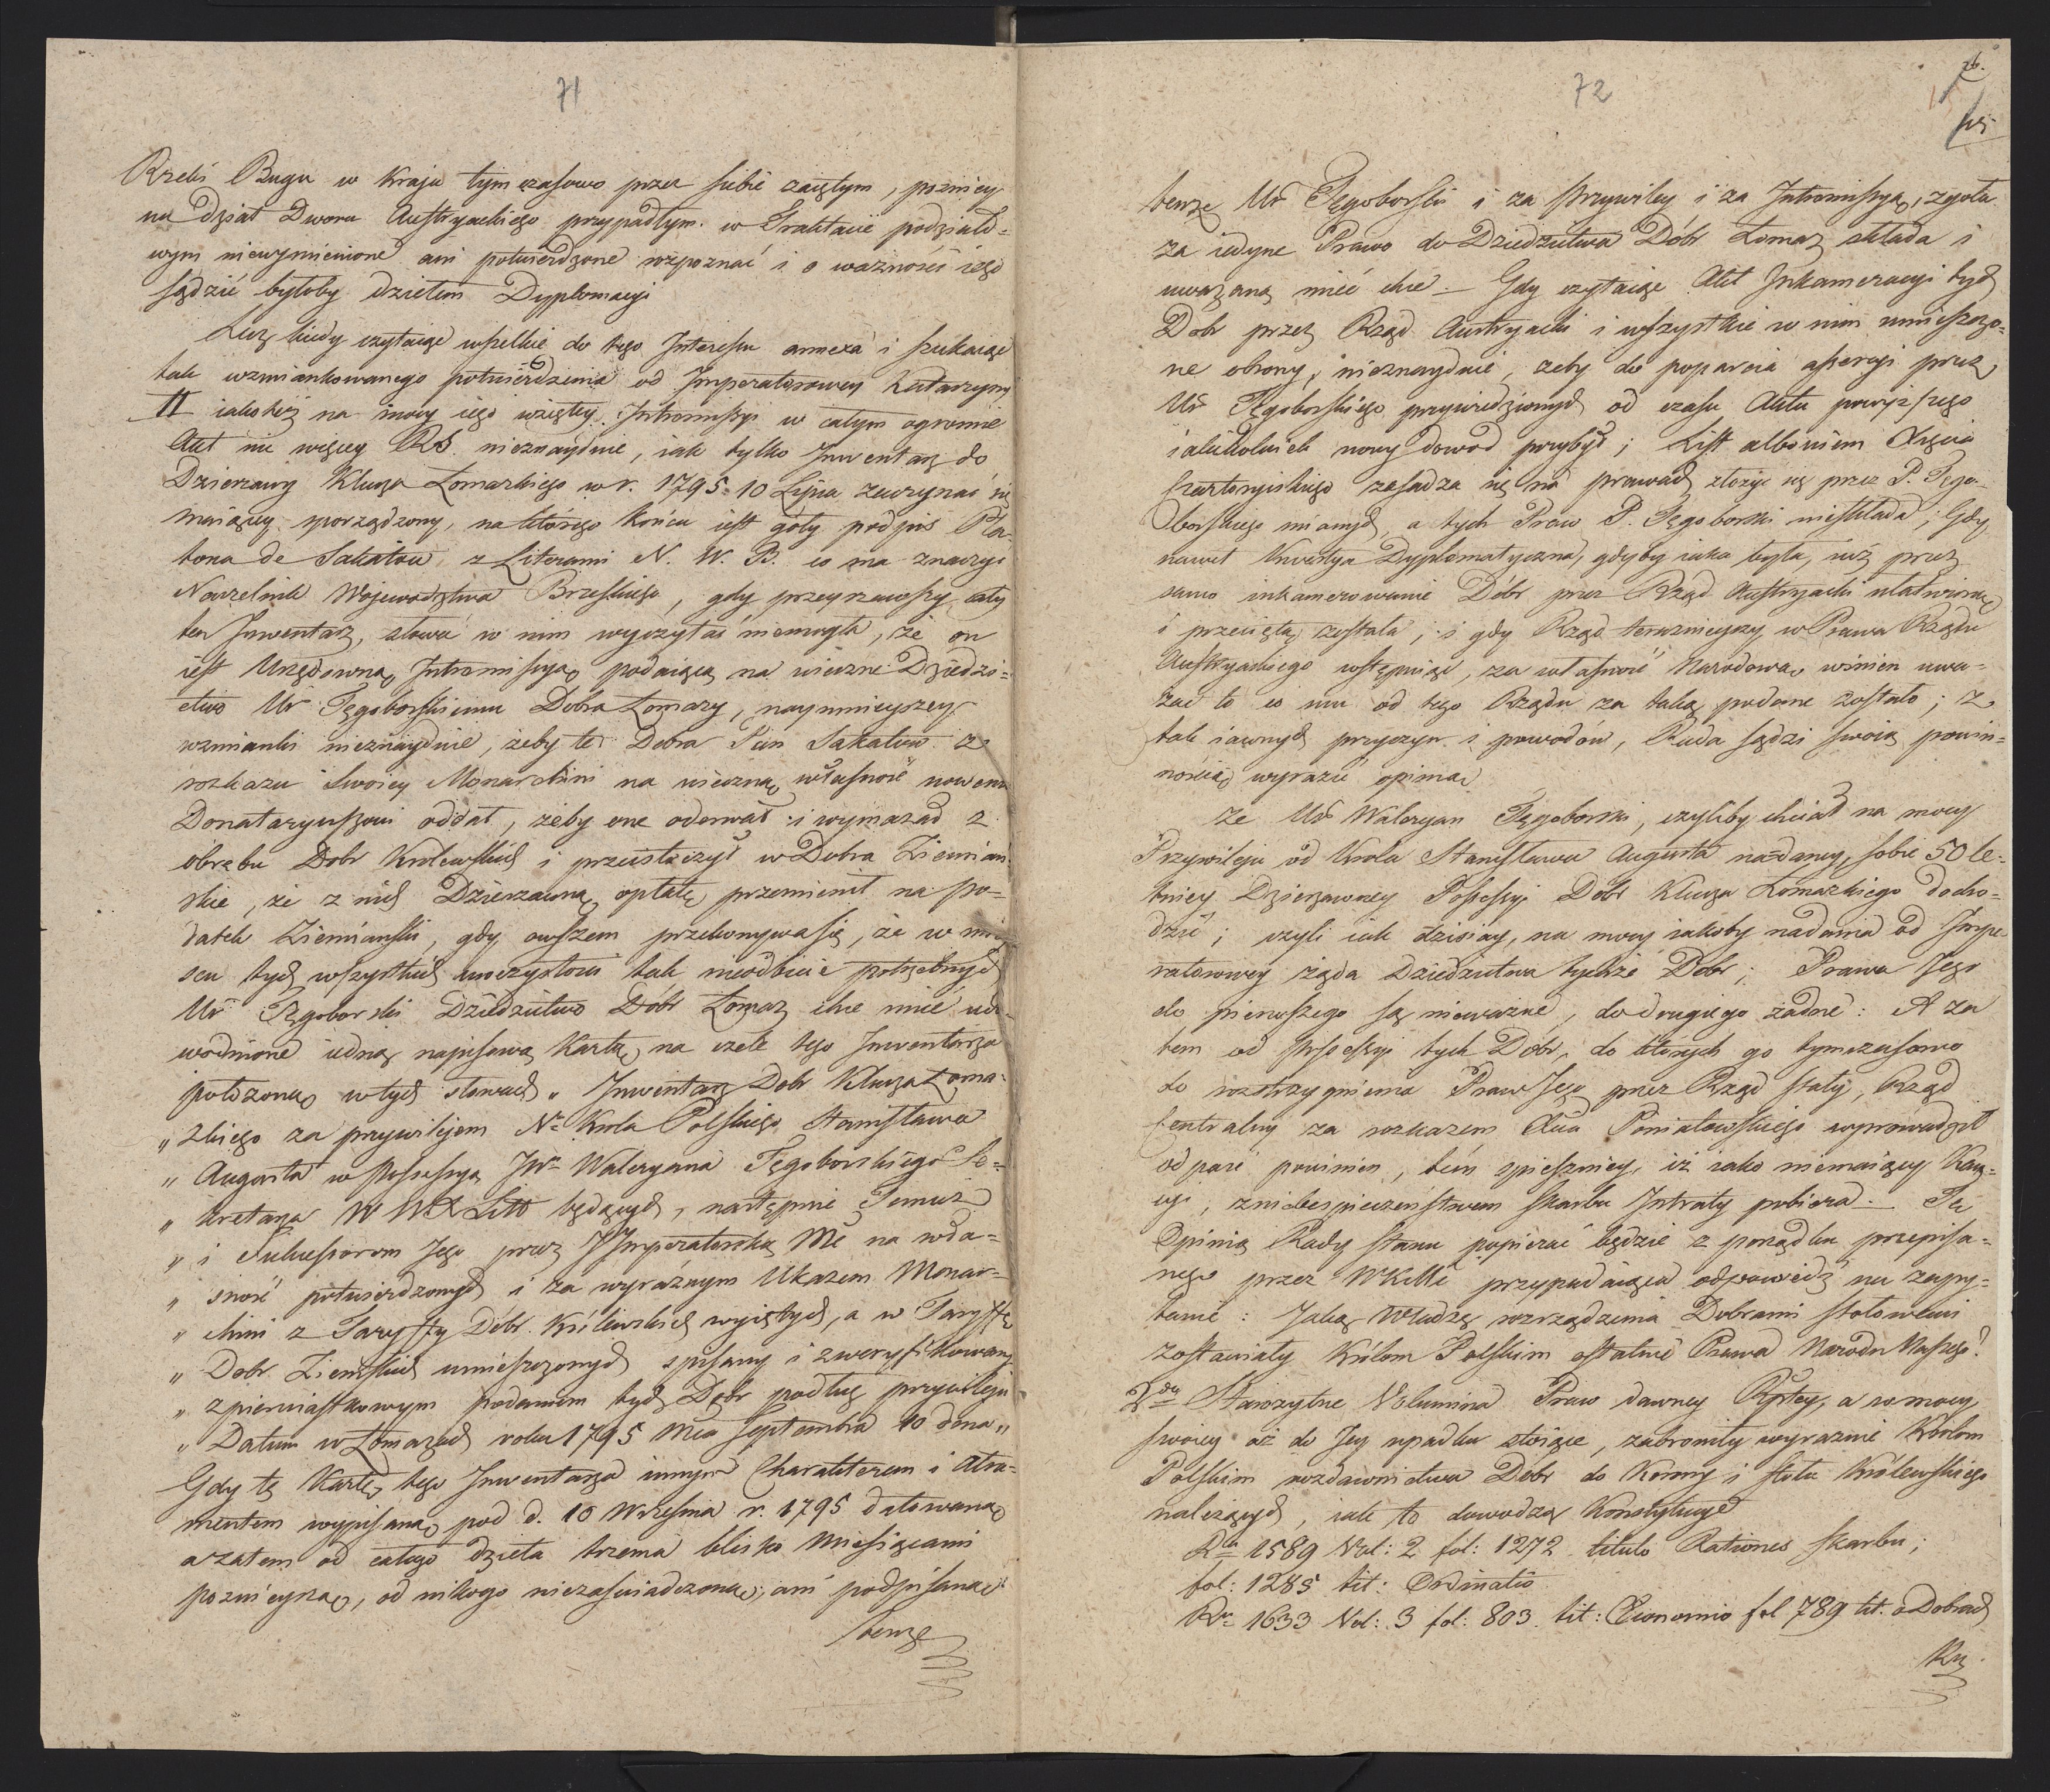 71
Rzeki Bugu w Kraju tymczasowo przez siebie zaiętym, pozniey
na dział Dworu Austryackiego przypadłym. w Traktacie podziało-
wym niewymienione ani potwierdzone rozpoznać i o ważności iego
sądzić byłoby dziełem Dyplomacyi
Lecz kiedy czytaiąc wszelkie do tego Interessu annexa i szukaiąc
tak wzmiankowanego potwierdzenia od Imperatorowey Katarzyny
II iakoteż na mocy iego wziętey Intromissyi w całym ogromie
Akt nic więcey RS. nieznayduie, iak tylko Inwentarz do
Dzierzawy Klucza Łomazkiego w r. 1795. 10 Lipca zaczynać się
maiącey sporządzony, na którego końcu iest goły podpis Pla-
tona de Sakatow z Literami N. W. B. co ma znaczyć
Naczelnik Woiewodztwa Brzeskiego, gdy przeyrzawszy cały
ten Inwentarz, słowa w nim wyczytać niemogła, że on
iest Urzędowną Intromissyą podaiącą na wieczne Dziedzi-
ctwo Ur Tęgoborskiemu Dobra Łomazy, naymnieyszey
wzmianki nieznayduie, żeby te Dobra Pan Sakatow z
rozkazu Swoiey Monarchini na wieczną własność nowemu
Donataryuszowi oddał, żeby one oderwał i wymazał z
obrębu Dobr Krolewskich i przeistoczył w Dobra Ziemian-
skie, że z nich Dzierzawną opłatę przemienił na po-
datek Ziemianski, gdy owszem przekonywa się, że w miey
scu tych wszystkich uroczystości tak nieodbicie potrzebnych
Ur Tęgoborski Dziedzictwo Dóbr Łomaz chce mieć udo-
wodnione iedną napisową Kartą na czele tego Inwentarza
położoną w tych słowach „ Inwentarz Dobr Klucza Łoma-
„ zkiego za przywileiem No Krola Polskiego Stanisława
„ Augusta w possessyą JWo Waleryana Tęgoborskiego Se-
„ kretarza W W X Litt będących, następnie Temuż
„ i Sukcessorom Jego przez JImperatorską Mć na wła-
„ sność potwierdzonych i za wyraźnym Ukazem Monar-
„ chini z Taryffy Dóbr Królewskich wyiętych, a w Taryffę
„ Dobr Ziemskich umieszczonych spisany i zweryfikowany
„ z pierwiastkowym podaniem tych Dobr podług przywileiu
„ Datum w Łomazach roku 1795 Mca Septembra 10 dnia „
Gdy tę Kartę tego Inwentarza innym Charakterem i Atra-
mentem wypisaną pod d. 10 Września r. 1795 datowaną
a zatem od całego dzieła trzema blisko Miesiącami
poznieyszą, od nikogo niezaświadczoną, ani podpisaną
tenze
72
26.
tenże Ur Tęgoborski i za Przywiley i za Intromissyą, zgoła
za iedyne Prawo do Dziedzictwa Dóbr Łomaz składa i
uważaną mieć chce — Gdy czytaiąc Akt Inkameracyi tych
Dóbr przez Rząd Austryacki i wszystkie w nim umieszczo-
ne obrony, nieznayduie, żeby do poparcia assercyi przez
Ur Tęgoborskiego przywiedzionych od czasu Aktu powyższego
iakikolwiek nowy dowód przybył; List albowiem Xięcia
Czartoryiskiego zasadza się na prawach złożyć się przez P. Tęgo-
borskiego mianych, a tych Praw P. Tęgoborski nieskłada; Gdy
nawet Kwestya Dyplomatyczna, gdyby iaka była, iuż przez
samo inkamerowanie Dóbr przez Rząd Austryacki ułatwioną
i przeciętą została; i gdy Rząd teraznieyszy w Prawa Rządu
Austryackiego wstępuiąc, za własność Narodową winien uwa-
żać to co mu od tego Rządu za taką podane zostało; z
tak iawnych przyczyn i powodów, Rada sądzi swoią powin-
nością wyrazić opinią
że Ur Waleryan Tęgoborski, czyliby chciał na mocy
Przywileju od Krola Stanisława Augusta nadaney sobie 50 le-
tniey Dzierzawney Possessyi Dóbr Klucza Łomazkiego docho-
dzić; czyli iak dzisiay, na mocy iakoby nadania od Impe-
ratorowey żąda Dziedzictwa tychże Dobr; Prawa Jego
do pierwszego są nieważne, do drugiego żadne: A za
tem od possessyi tych Dóbr, do których go tymczasowo
do rozstrzygnienia Praw Jego przez Rząd stały, Rząd
Centralny za rozkazem Xcia Poniatowskiego wprowadził
odpaść powinien, tém spieszniey, iż iako niemaiący Kau-
cyi, z niebespieczeństwem Skarbu Intraty pobiera. — Tę
Opinią Rady Stanu popierać będzie z porządku przepisa-
nego przez WKMć przypadaiąca odpowiedź na zapy-
tanie: Jaką Władzę rozrządzenia Dobrami stołowemi
zostawiały Królom Polskim ostatnie Prawa Narodu Naszego?
2do Starożytne Volumina Praw dawney Rzptey, a w mocy
swoiey aż do Jey upadku stoiące, zabroniły wyraznie Królom
Polskim rozdawnictwa Dóbr do Korony i stołu Królewskiego
należących, iak to dowodzą Konstytucye
Rku 1589 Vol: 2 fol: 1272 titulo Rationes Skarbu;
fol: 1285 tit: Ordinatio
Rku 1633 Vol: 3 fol: 803. tit: Œconomio fol 789 tit. o Dobrach
Kr